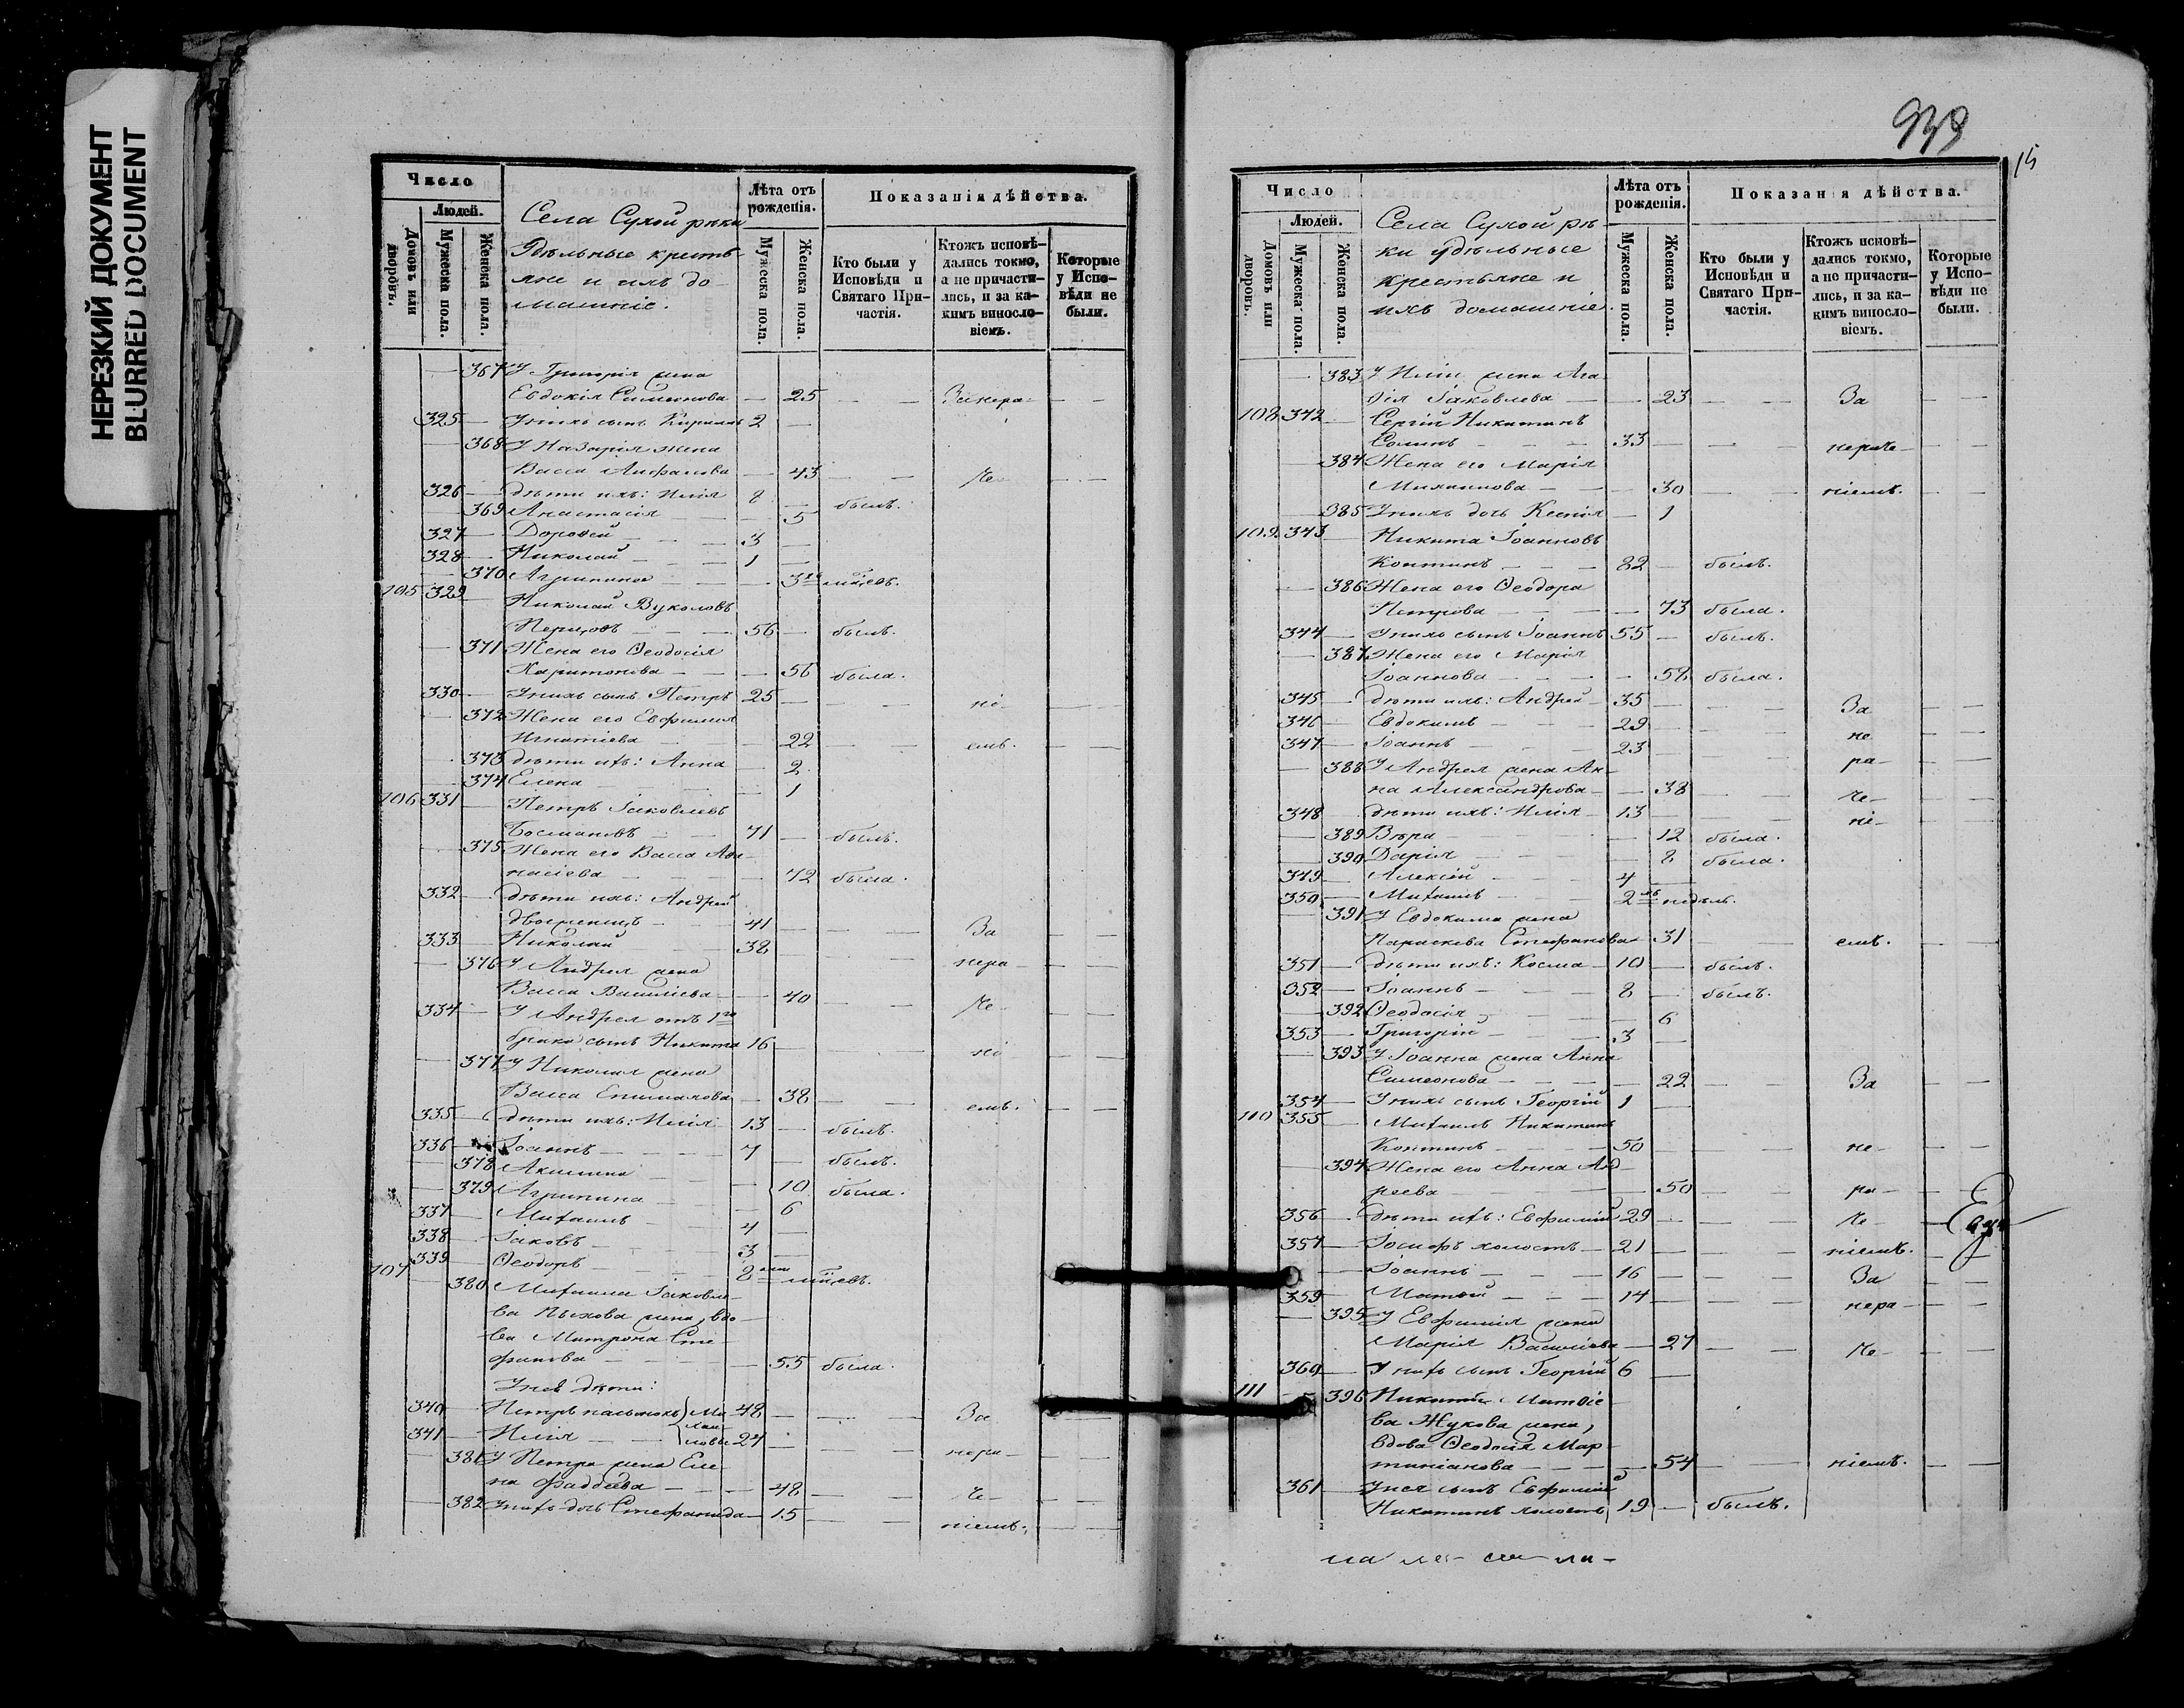 НЕРЕЗКИЙ ДОКУМЕНТ
BLURRED DOCUMENT
Число
Людей.
Домовъ или дворовъ.
Мужеска пола.
Женска пола.
Села Сухой рѣки
Удѣльные кресть-
яне и ихъ до-
машніе.
Лѣта отъ рожденія.
Мужеска пола.
Женска пола.
Показанія дѣйства.
Кто были у Исповѣди и Святаго Причастія.
Ктожъ исповѣ-
дались токмо,
а не причасти-
лись, и за ка-
кимъ винословіемъ.
Которые у Испо-
вѣди не были.
367 У Григорія жена
Евдокія Симеонова — 25 — — Занера- — —
325 — У нихъ сынъ Кириллъ 2 —
368 У Назарія жена
Васса — 43 — — че- — —
326 — дѣти ихъ: Илія 8 — былъ.
369 Анастасія — — 5
327 — Дороѳей — — 3 —
328 — Николай — — 1 —
370 Агрипина — — 3 мѣсев.
105 329 — Николай Вуколовъ
— — 56 — былъ.
371 Жена его Ѳеодосія
Харитонова — — 56 была.
330 — У нихъ сынъ Петръ 25 — — — ні- — —
372 Жена его Евфимія
Игнатіева — — 22 — — емъ. — —
373 дѣти ихъ: Анна — 2
374 Елена — — 1
106 331 — Петръ Іаковлевъ
Босмановъ — — 71 — былъ.
375 Жена его Васса Аѳа-
насіева — — 72 была.
332 — дѣти ихъ: Андрей
двоеженецъ — 41 — — — За — —
333 — Николай — 38 — — — нера — —
376 У Андрея жена
Васса Василіева — — 40 — — че- — —
334 — У Андрея отъ 1го
брака сынъ Никита 16 — — — ні — —
377 У Николая жена
Васса Епимахова — 38 — — емъ. — —
335 — дѣти ихъ: Илія 13 — былъ.
336 — Іоаннъ — — 7 — былъ.
378 Акилина — — 10 была.
379 Агрипина — — 6
337 — Михаилъ — 4 —
338 — Іаковъ — 3 —
339 — Ѳеодоръ — 8 мѣсевъ.
107
380 Михаила Іаковле-
ва Пыхова жена, вдо-
ва Матрона Сте-
фанова — — 55 была.
У нея дѣти:
340 — Петръ пасынокъ } Ми- 48 — — — За — —
341 — Илія — — } хаи-ловы 24 — — — нера — —
381 У Петра жена Еле-
на Фаддеева — — 48 — — че- — —
382 У нихъ дочь Стефанида — 15 — — ніемъ. — —
939
15
Число
Людей.
Домовъ или дворовъ.
Мужеска пола.
Женска пола.
Села Сухой рѣ-
ки удѣльные
крестьяне и
ихъ домашніе.
Лѣта отъ рожденія.
Мужеска пола.
Женска пола.
Показанія дѣйства.
Кто были у Исповѣди и Святаго Причастія.
Ктожъ исповѣ-
дались токмо,
а не причасти-
лись, и за ка-
кимъ винословіемъ.
Которые у Испо-
вѣди не были.
383 У Иліи жена Ага-
ѳія Іаковлева — — 23 — — За — —
108 342 — Сергій Никитинъ
— — 33 — — — нераче- — —
384 Жена его Марія
Михаилова — — 30 — — ніемъ. — —
385 У нихъ дочь Ксенія — 1
109 343 — Никита Іоанновъ
Коптинъ — — 82 — былъ.
386 Жена его Ѳеодора
Петрова — — 73 была.
344 — У нихъ сынъ Іоаннъ 55 — былъ.
387 Жена его Марія
Іоаннова — — 58 была.
345 — дѣти ихъ: Андрей — 35 — — — За — —
346 — Евдокимъ — — 29 — — — не — —
347 — Іоаннъ — — 23 — — — ра- — —
388 У Андрея жена Ан-
на Александрова — — 38 — — че- — —
348 — дѣти ихъ: Илія — 13 — — — ні- — —
389 Вѣра — — 12 была.
390 Дарія — — 8 была.
349 — Алексій — — 4 —
350 — Михаилъ — — 2хъ недѣль.
391 У Евдокима жена
Параскева Стефанова — 31 — — емъ. — —
351 — дѣти ихъ: Косма — 10 — былъ.
352 — Іоаннъ — — 8 — былъ.
392 Ѳеодосія — — 6
353 — Григорій — — 3 —
393 У Іоанна жена Анна
Симеонова — — 22 — — За — —
354 — У нихъ сынъ Георгій 1 —
110 355 — Михаилъ Никитинъ
Коптинъ — — 50 — — — не- — —
394 Жена его Анна Анд-
реева — — 50 — — ра- — —
356 — дѣти ихъ: Евфимій 29 — — — че- — —
357 — Іосифъ холостъ — 21 — — — ніемъ. — —
— Іоаннъ — — 16 — — — За — —
359 — Матѳей — — 14 — — — нера- — —
395 У Евфимія жена
Марія Василіева — 27 — — че- — —
360 — У нихъ сынъ Георгій 6 —
111
396 Никиты Матѳіе-
ва Жукова жена,
вдова Ѳеодосія Мар-
тиніанова — — 54 — — ніемъ. — —
361 — У нея сынъ Евфимій
Никитинъ холостъ 19 — былъ.